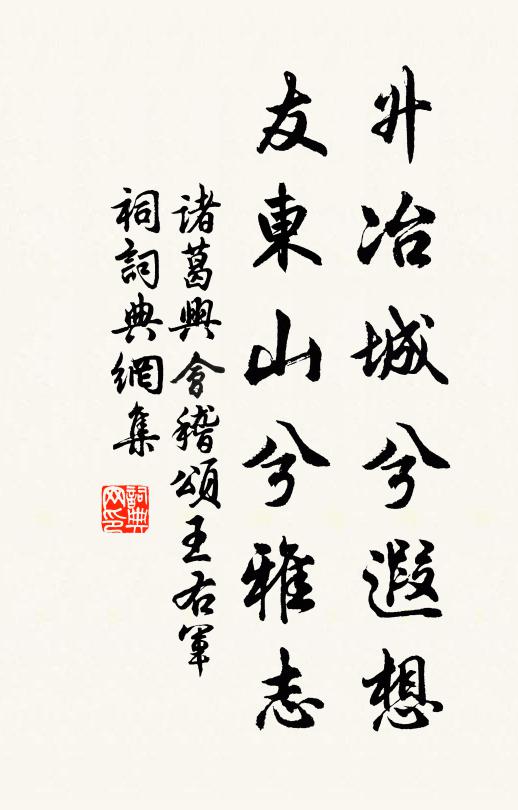 升冶城兮遐想
友東山兮雅志
诸葛興會稽頌王右軍
祠詞典網集
詞典网印